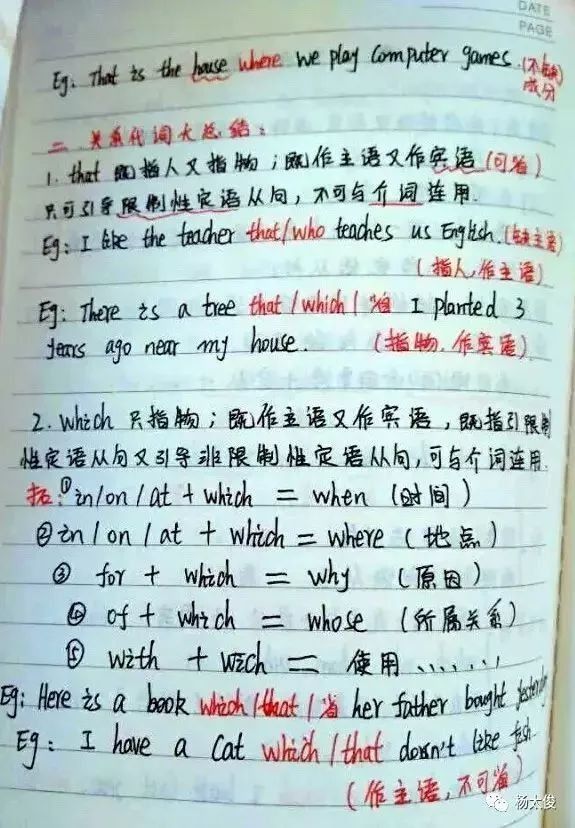 DATE
PAGE
Eg: That is the house where we play computer games. (不缺
成分
二、关系代词大总结:
1. that 既指人又指物;既作主语又作宾语(可省)
只可引导限制性定语从句,不可与介词连用.
Eg: I like the teacher that/who teaches us English. (缺主语)
(指人,作主语)
Eg: There is a tree that/which/省 I planted 3
years ago near my house. (指物.作宾语)
2. which 只指物;既作主语又作宾语,既指引限制
性定语从句又引导非限制性定语从句,可与介词连用.
拓:①in/on/at + which = when (时间)
②in/on/at + which = where (地点)
③ for + which = why (原因)
④ of + which = whose (所属关系)
⑤ with + wich = 使用......
Eg: Here is a book which/that/省 her father bought yesterday
Eg: I have a cat which/that doesn't like fish.
(作主语,不可省)
杨太俊